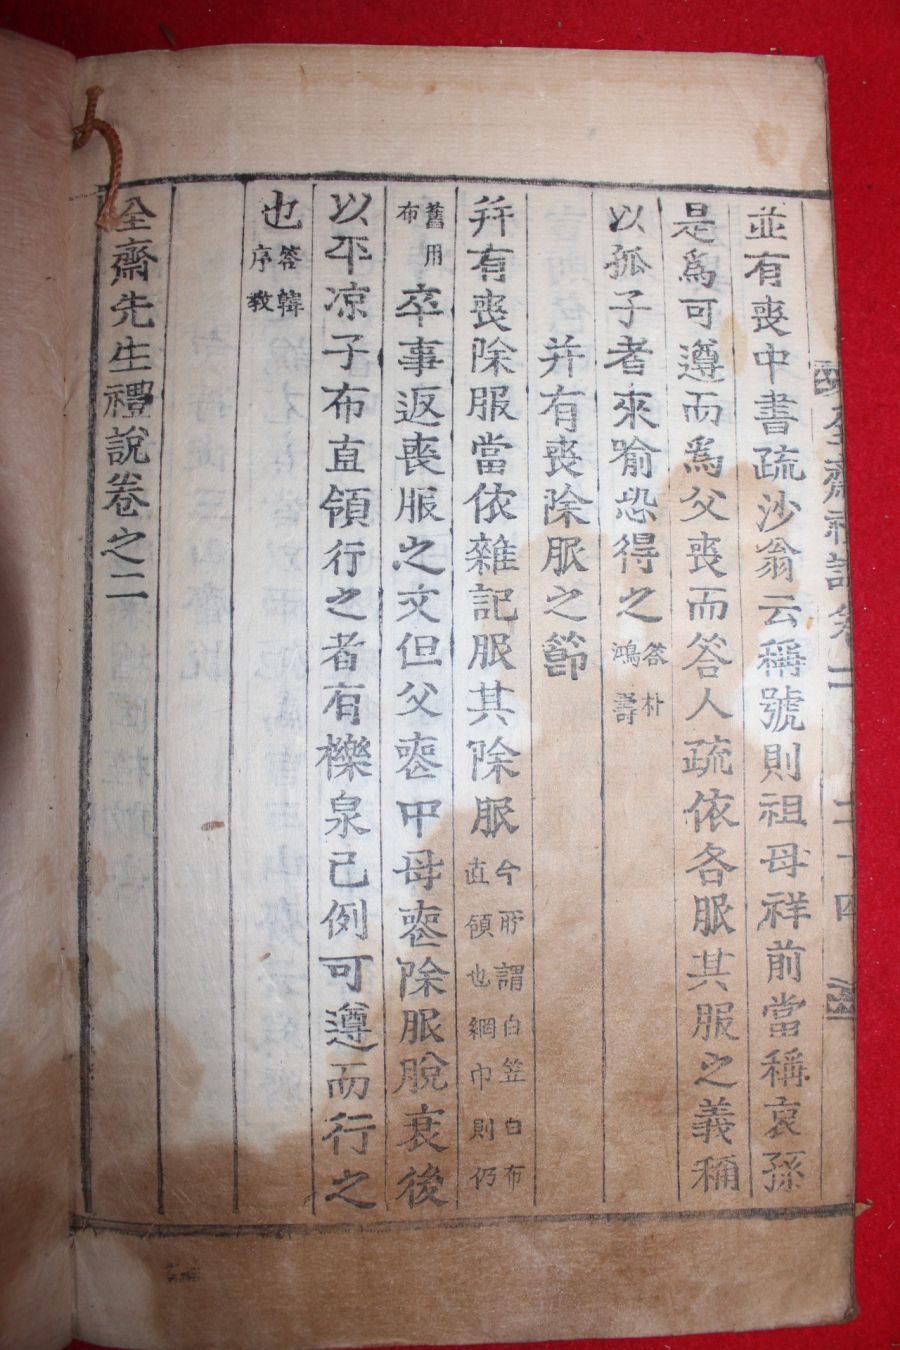 並有喪中書疏沙翁云稱號則祖母祥前當稱哀孫
是爲可遵而爲父喪而答人疏依各服其服之義稱
以孤子者來喻恐得之答朴鴻壽
并有喪除服之節
并有喪除服當依雜記服其除服今所謂白笠白布直領也網巾則仍
舊用布卒事返喪服之文但父喪中母喪除服脫衰後
以平凉子布直領行之者有櫟泉已例可遵而行之
也答韓序敎
全齋先生禮說卷之二